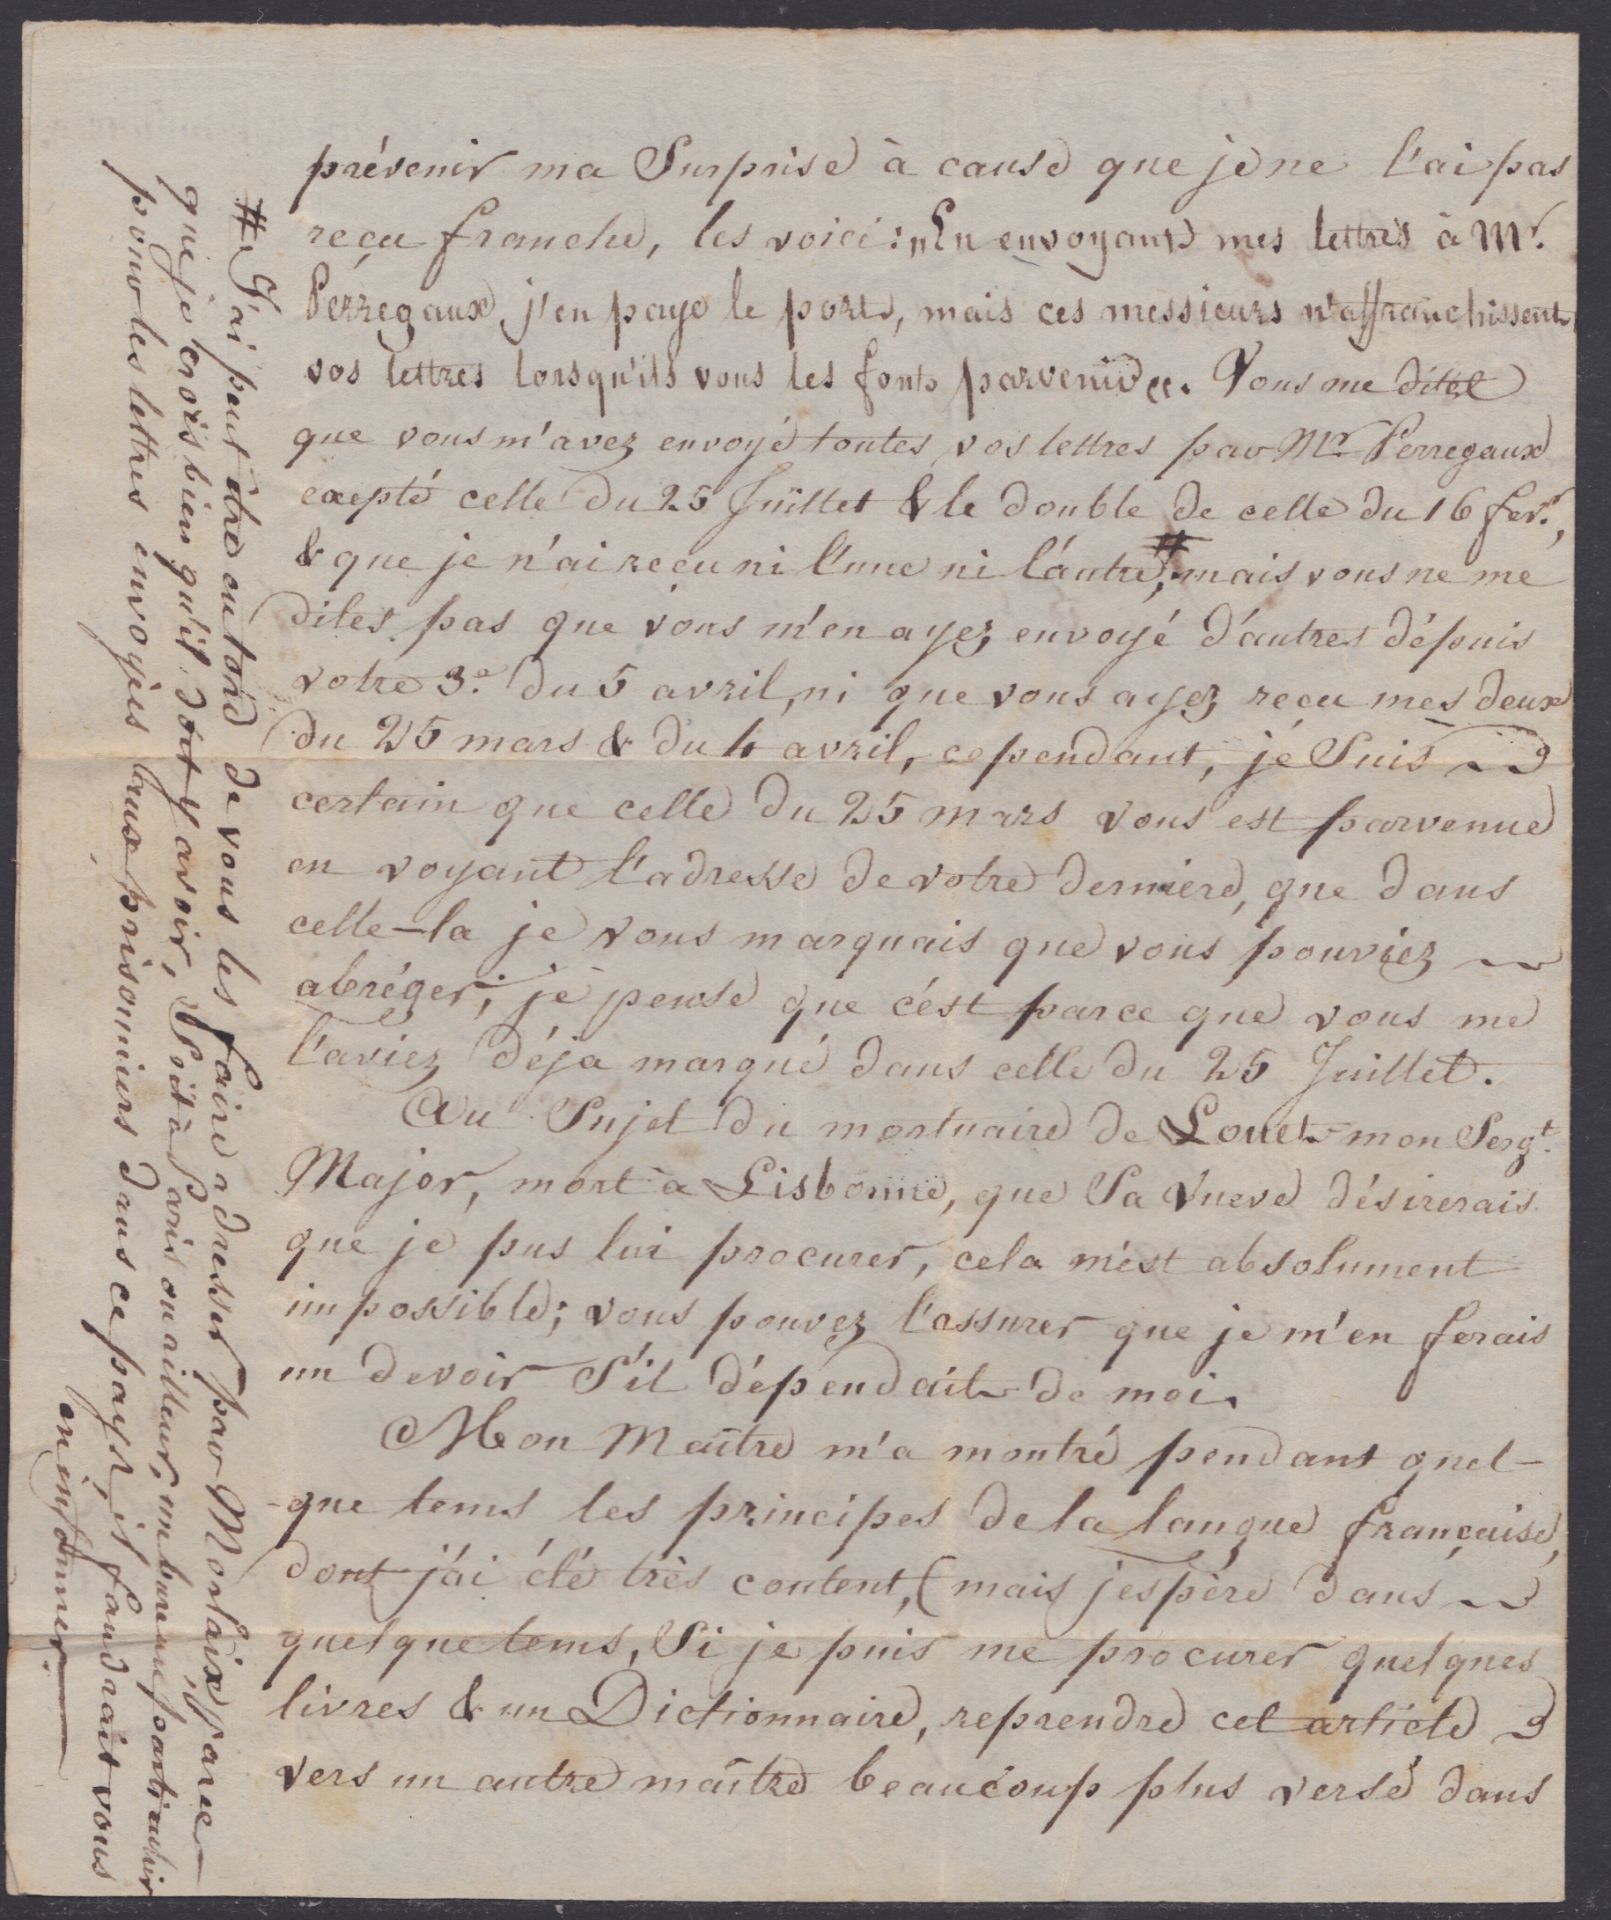 prévenir ma Surprise à cause que je ne l'ai pas
reçu franche, les voici: „En envoyant mes lettres à Mr.
Perregaux, j'en paye le port, mais ces messieurs n'affranchissent
vos lettres lorsqu'ils vous les font parvenir“. Vous me dites
que vous m'avez envoyé toutes vos lettres par Mr. Perregaux
exepté celle du 25 Juillet & le double de celle du 16 fevr.,
& que je n'ai reçu ni l'une ni l'autre #, mais vous ne me
dites pas que vous m'en ayez envoyé d'autres dépuis
votre 3e. du 5 avril, ni que vous ayez reçu mes deux
du 25 mars & du 4 avril, cependant, je Suis
certain que celle du 25 mars vous est parvenue
en voyant l'adresse de votre derniere, que dans
celle-la je vous marquais que vous pouviez
abréger; je pense que c'est parce que vous me
l'aviez déja marqué dans celle du 25 Juillet.
Au Sujet du mortuaire de Louet mon Sergt.
Major, mort à Lisbonne, que Sa Vueve désirerais
que je pus lui procurer, cela m'est absolument
impossible; vous pouvez l'assurer que je m'en ferais
un devoir S'il dépendait de moi.
Mon Maître m'a montré pendant quel-
-que tems les principes de la langue française,
dont j'ai été très content, (mais j'espère dans
quelque tems, Si je puis me procurer quelques
livres & un Dictionnaire, reprendre cet article
vers un autre maître beaucoup plus versé dans
# J'ai peut être eu tord de vous les faire adresser par Morlaix, parce
que je crois bien qu'il doit y avoir, Soit à Paris ou ailleur, un bureau particulier
pour les lettres envoyées aux prisonniers dans ce pays, il faudrait vous
en informer.